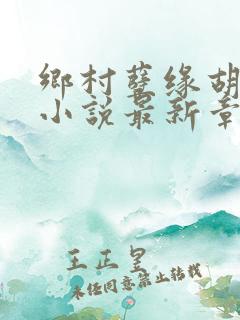 鄉村孽缘胡
小説最新章
王正皇
未经同意禁止转载